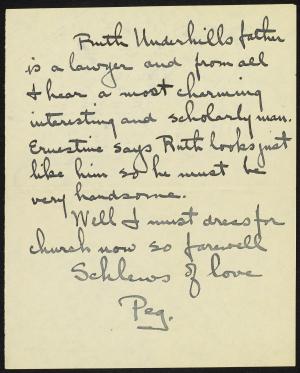 Ruth Underhills father
is a lawyer and from all
I hear a most charming
interesting and scholarly man.
Ernestine says Ruth looks just
like him so he must be
very handsome.
Well I must dress for
church now so farewell
Schlews of love
Peg.